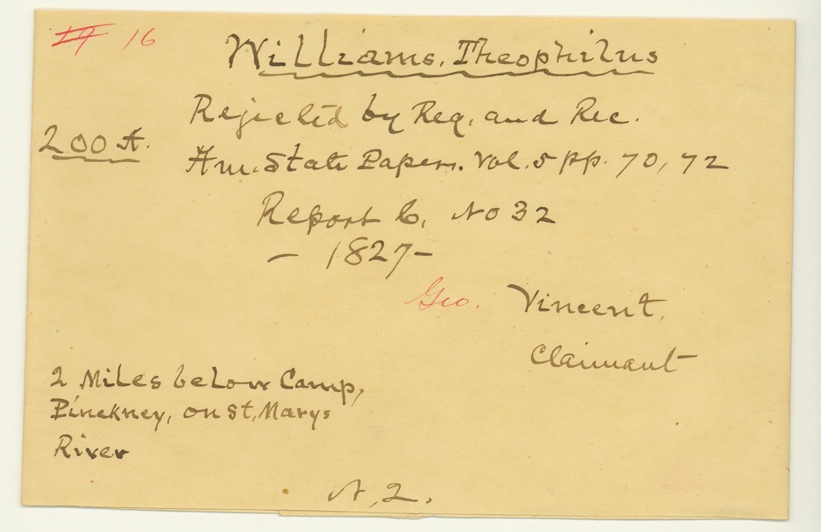 16
Williams, Theophilus
Rejected by Reg. and Rec.
200 A.
Am. State Papers. Vol. 5 pp. 70, 72
Report 6, No 32
- 1827 -
Geo. Vincent,
Claimant
2 Miles below Camp,
Pinckney, on St. Marys
River
N, 2.